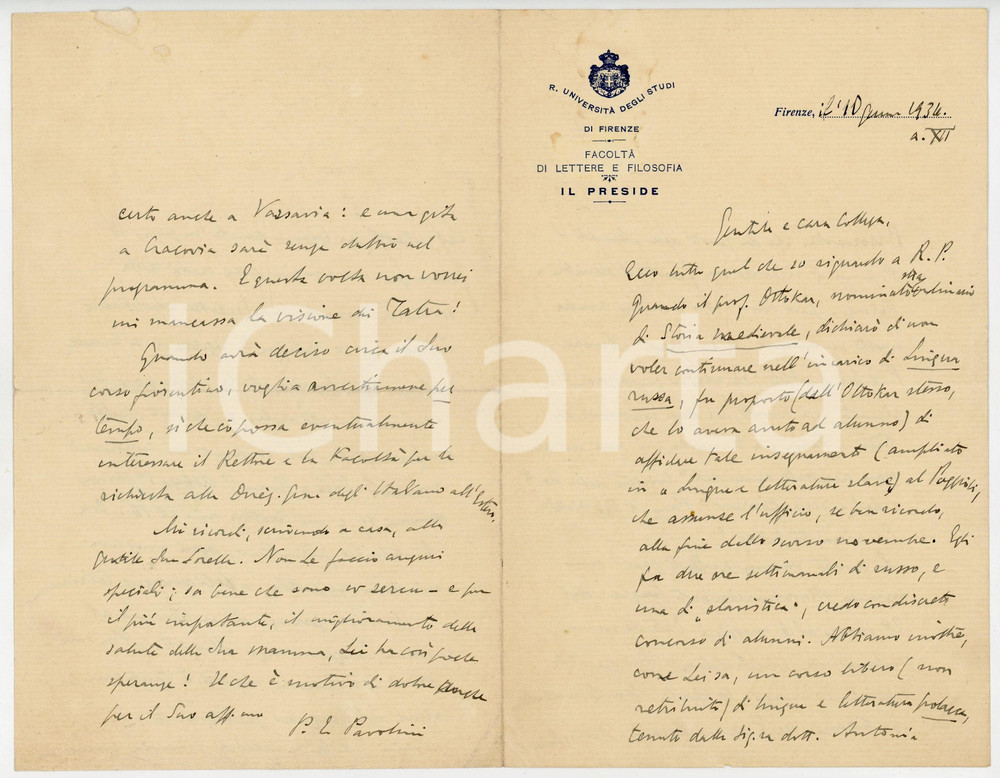 R. UNIVERSITÀ DEGLI STUDI
DI FIRENZE
FACOLTÀ
DI LETTERE E FILOSOFIA
IL PRESIDE
Firenze, il 10 1934.
a. XII
Gentile e cara Collega,
Ecco tutto quel che so riguardo a R. P.
Quando il prof. Ottokar, nominato straordinario
di Storia medievale, dichiarò di non
voler continuare nell'incarico di Lingua
russa, fu proposto (dall'Ottokar stesso,
che lo aveva avuto ad alunno) di
affidare tale insegnamento (ampliato
in a Lingue e letterature slave) al Poggioli,
che assunse l'ufficio, se ben ricordo,
alla fine dello scorso novembre. Egli
fa due ore settimanali di russo, e
una di "slavistica", credo con discreto
concorso di alunni. Abbiamo inoltre,
come Lei sa, un corso libero (non
retribuito) di lingua e letteratura polacca,
tenuto dalla Sig.ra dott. Antonia
certo anche a Varsavia: e una gita
a Cracovia sarà senza dubbio nel
programma. E questa volta non vorrei
mi mancasse la visione dei Tatra!
Quando avrà deciso circa il Suo
corso fiorentino, voglia avvertirmene per
tempo, sì che io possa eventualmente
interessare il Rettore e la Facoltà per la
richiesta alla Direz. Gen. degli Italiani all'Estero.
Mi ricordi, scrivendo a casa, alla
gentile Sua Sorella. Non Le faccio auguri
speciali; sa bene che sono - e per
il più importante, il miglioramento della
salute della Sua mamma, Lei ha così poche
speranze! Il che è motivo di dolore anche
per il Suo aff.mo
P. E. Pavolini
iCharta